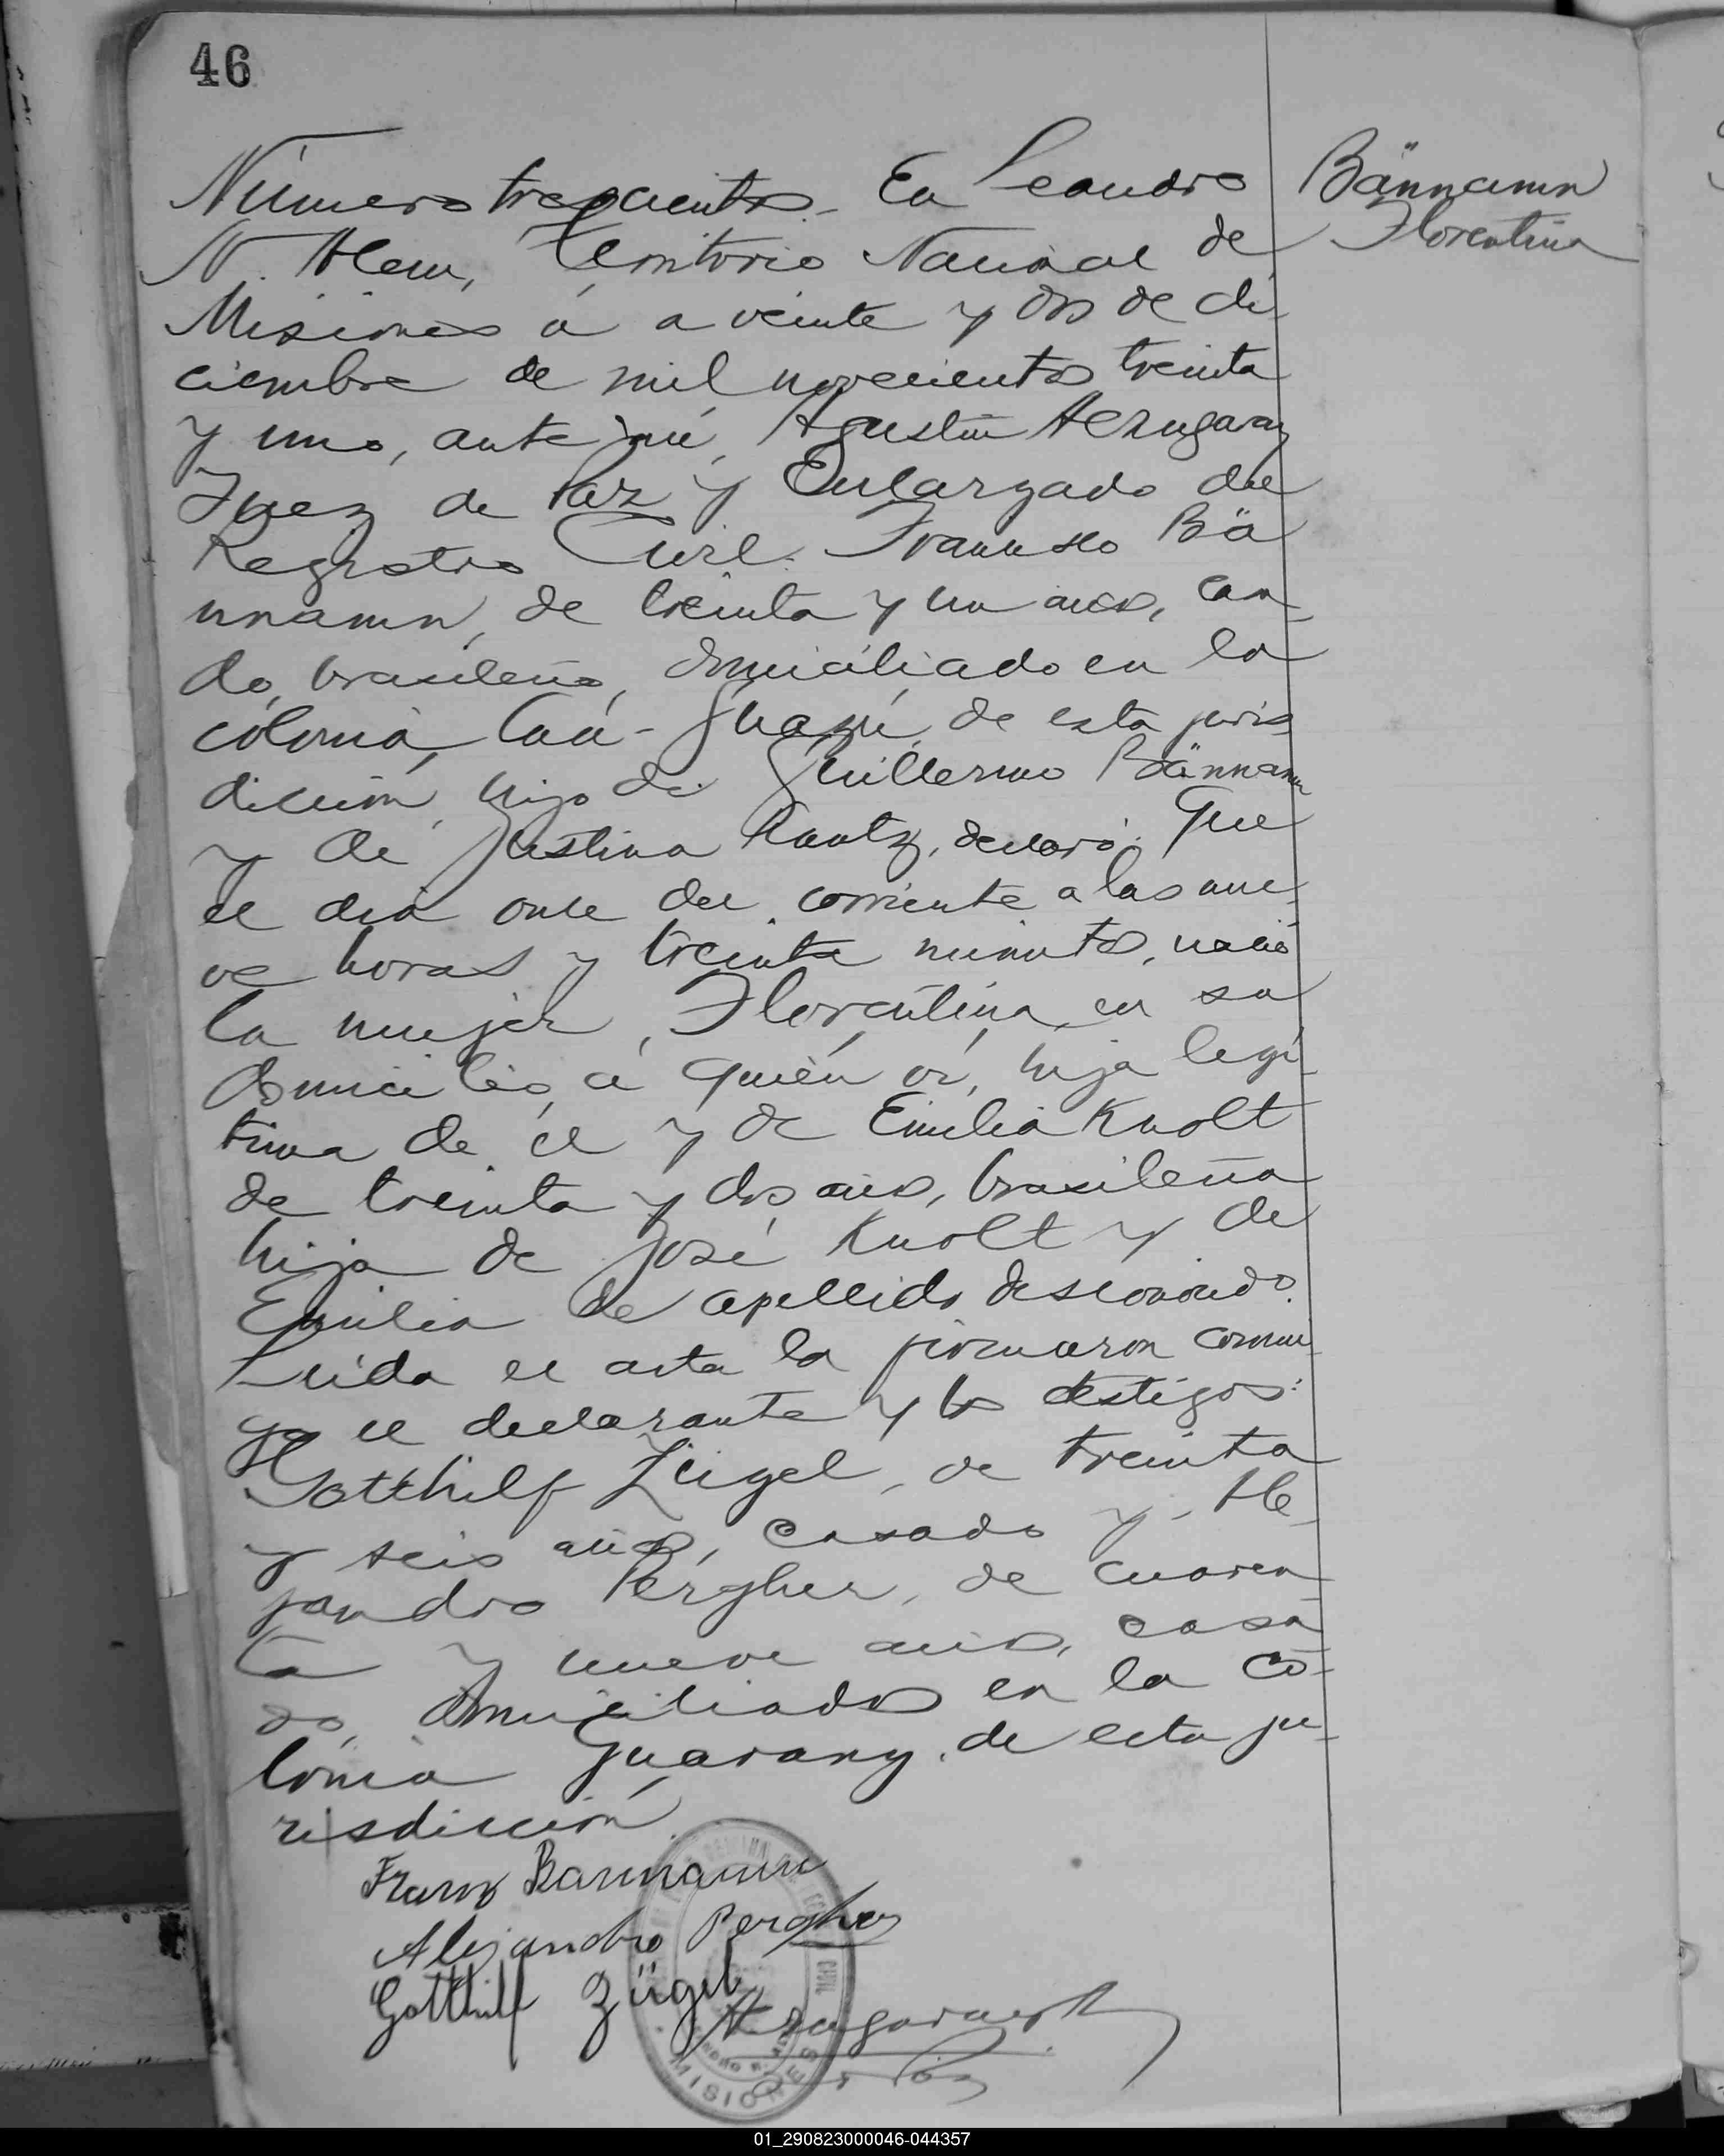 46
Número trescientos.- En Leandro
N. Alem, Territorio Nacional de
Misiones á a veinte y dos de di
ciembre de mil novecientos treinta
y uno, ante mí, Agustín
Juez de Paz y Encargado del
Registro Civil. Francisco Bä
nnamn, de treinta y un años, casa
do, brasileño, domiciliado en la
colonia, Caá-Guazú, de esta juris
dicción, hijo de Guillermo Bännamn
y de Justina Rautz, declaró: Que
el dia once del corriente a las nue
ve horas y treinta minutos, nació
la mujer, Florentina, en su
domicilio, á quién ví, hija legí
tima de él y de Emilia Knolt
de treinta y dos años, brasileña
hija de José Knolt y de
Emilia de apellido desconocido.
Leída el acta la firmaron conmi
go el declarante y los testigos:
Gotthilf Zügel, de treinta
y seis años, casado y- Ale
jandro Pergher, de cuaren
ta y nueve años, casa
do, domiciliados en la co-
lonia Guarany, de esta ju-
risdicción.
Bännamn
Florentina
Franz Bannamn
Alejandro Pergher
Gotthilf Zügel
CIVIL
MISIONES
01_290823000046-044357